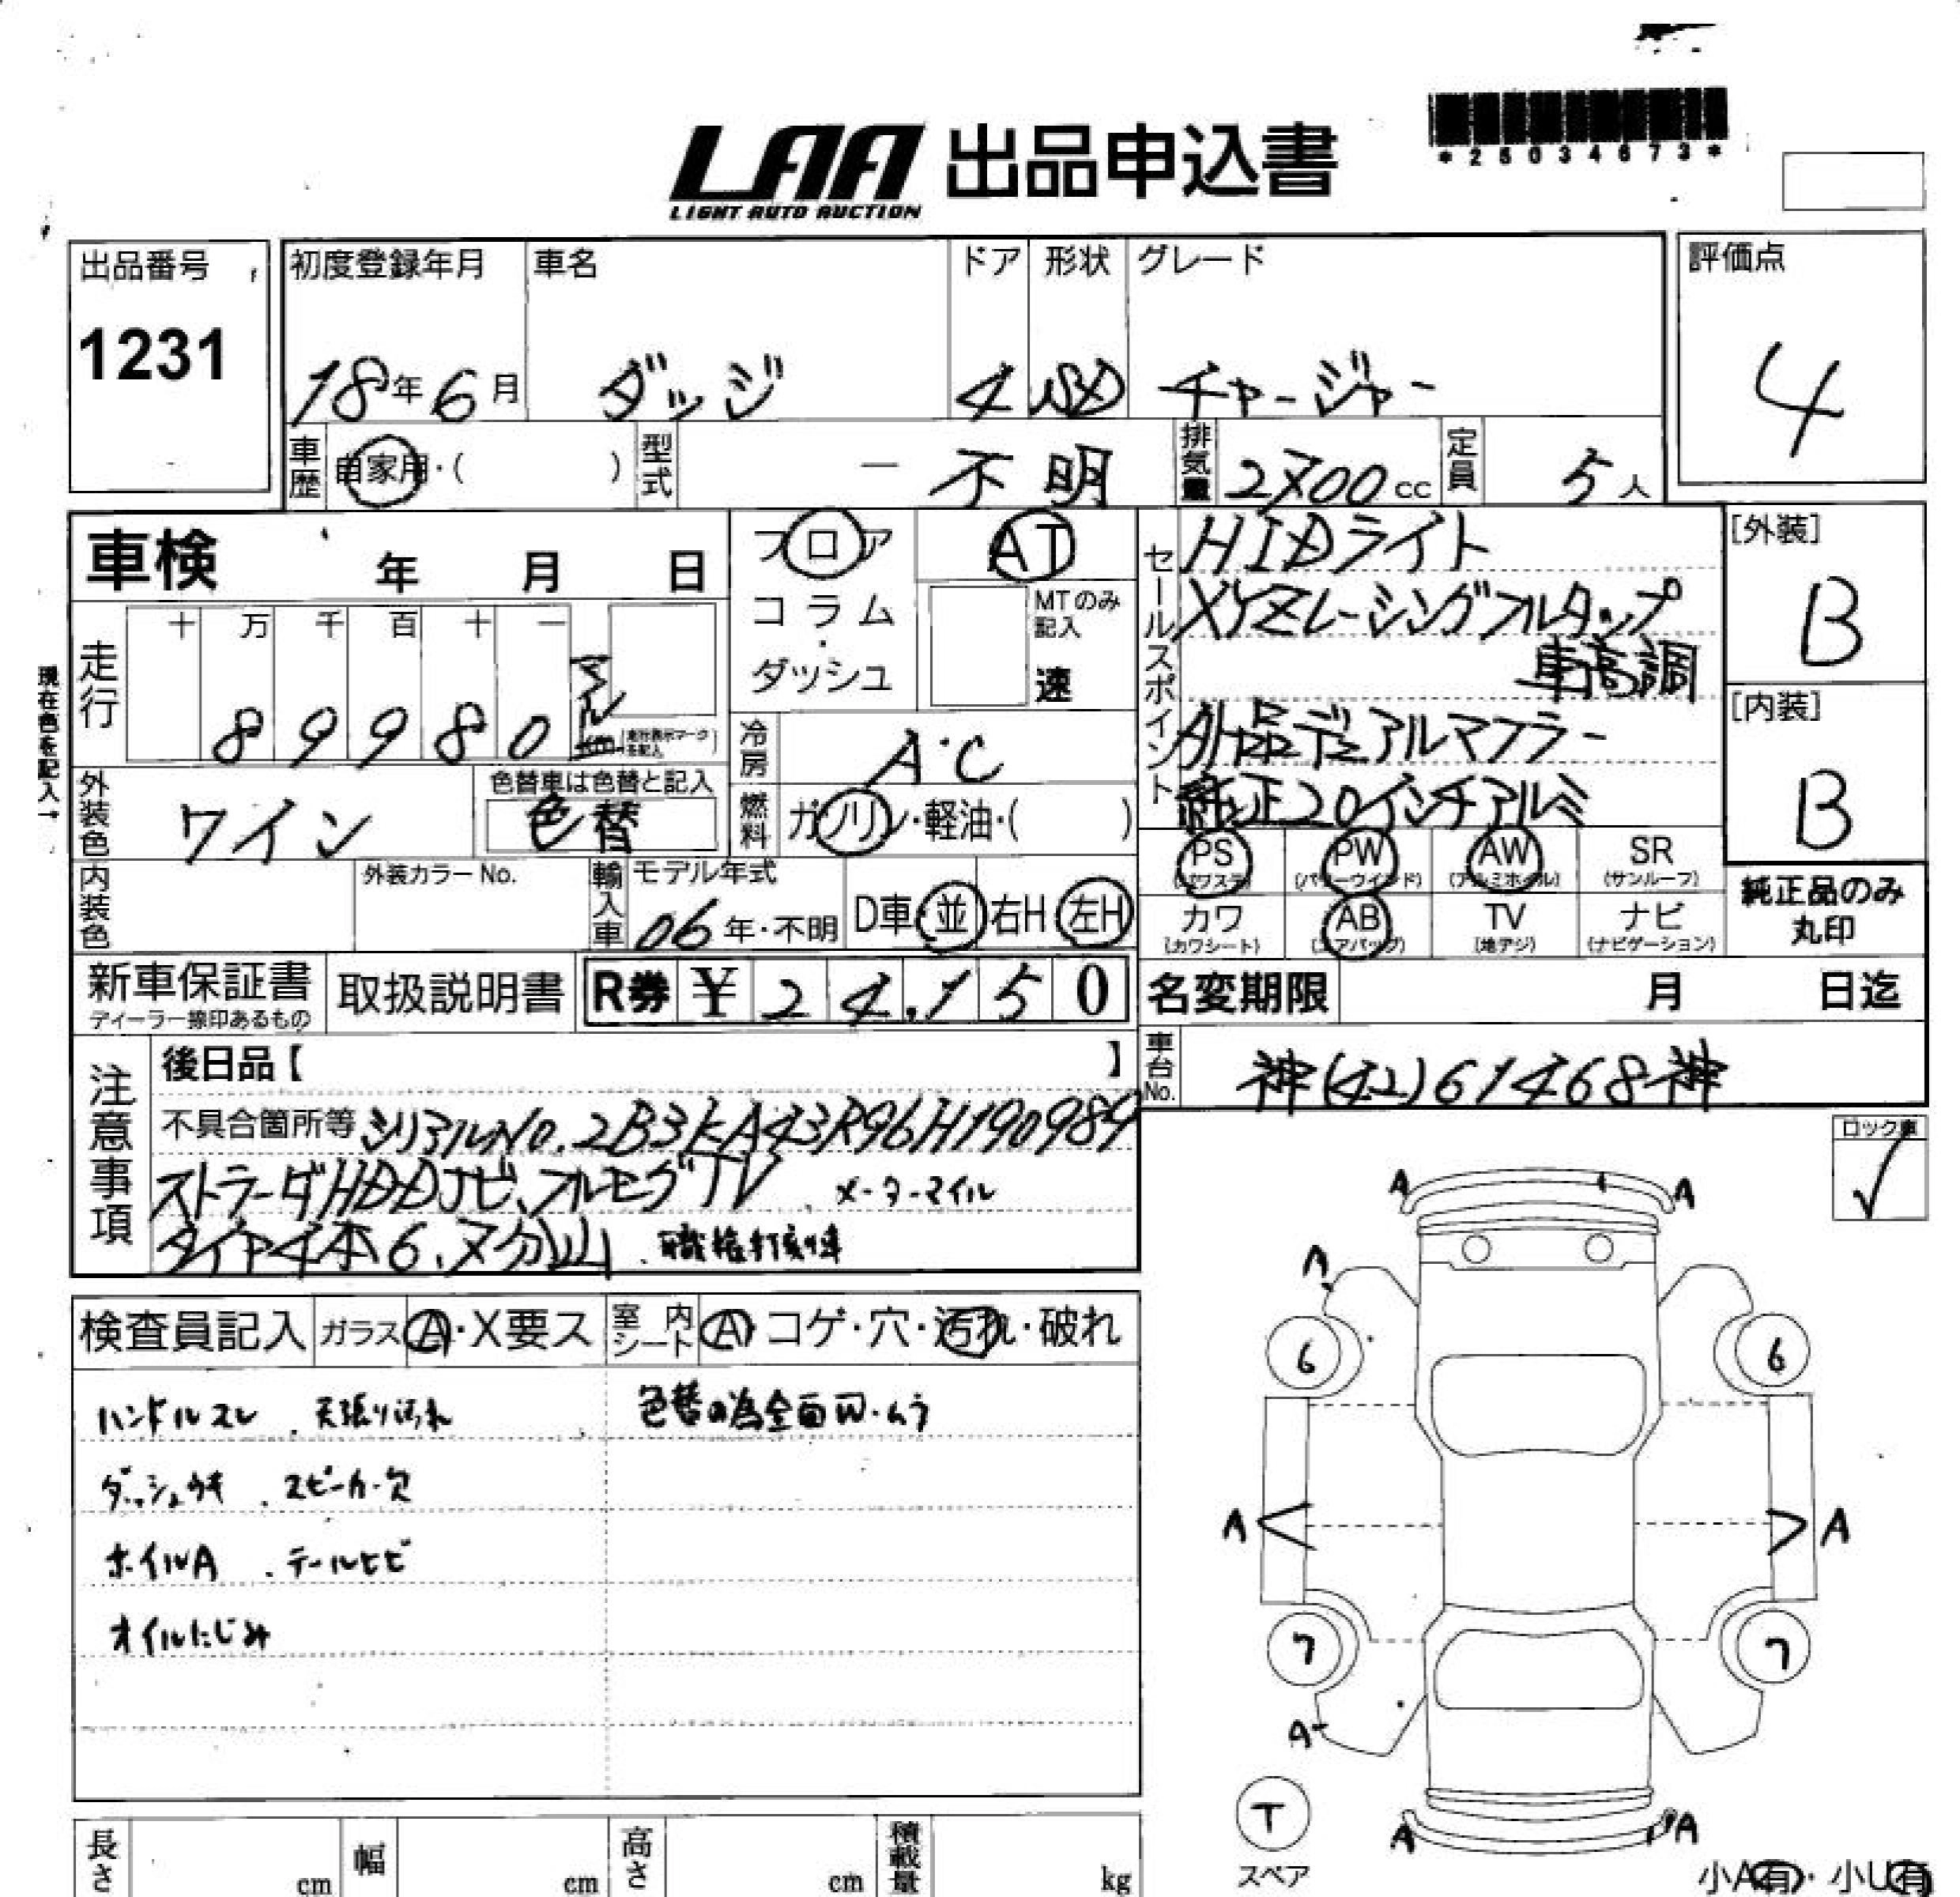 *25034673*
LAA 出品申込書
LIGHT AUTO AUCTION
出品番号
1231
初度登録年月 車名 ドア 形状 グレード
18年6月 ダッジ 4 SD チャージャー
評価点
4
車歴 自家用・( ) 型式 ー 不明 排気量 2700cc 定員 5人
車検 年 月 日
フロア AT
コラム・ダッシュ
MTのみ記入
速
走行
十 万 千 百 十 一
89980 マイル km (走行表示マークを記入)
現在色を記入→
冷房 A・C
外装色 ワイン
色替車は色替と記入
色替
燃料 ガソリン・軽油・( )
内装色
外装カラーNo.
輸入車
モデル年式
06年・不明
D車・並 右H 左H
セールスポイント
HIDライト
XYZレーシングフルタップ
車高調
外品デュアルマフラー
純正20インチアルミ
[外装]
B
[内装]
B
PS PW AW SR
(パワステ) (パワーウインド) (アルミホイル) (サンルーフ)
カワ AB TV ナビ
(カワシート) (エアバッグ) (地デジ) (ナビゲーション)
純正品のみ
丸印
新車保証書
ディーラー捺印あるもの
取扱説明書
R券 ¥ 24,150
名変期限 月 日迄
車台No. 神(42)61468神
注意事項
後日品【 】
不具合箇所等 シリアルNo.2B3KA43R96H190989
ストラーダHDDナビ、フルセグTV メーターマイル
タイヤ4本6、7分山 . 職権打刻車
ロック車
✓
検査員記入 ガラス A・X要ス 室内シート A コゲ・穴・汚れ・破れ
ハンドルスレ . 天張り汚れ 色替の為全面W・ムラ
ダッシュウキ . スピーカー欠
ホイルA . テールヒビ
オイルにじみ
A A
A
6 6
A A
7 7
A
T
スペア
A A
小A有・小U有
長さ cm 幅 cm 高さ cm 積載量 kg